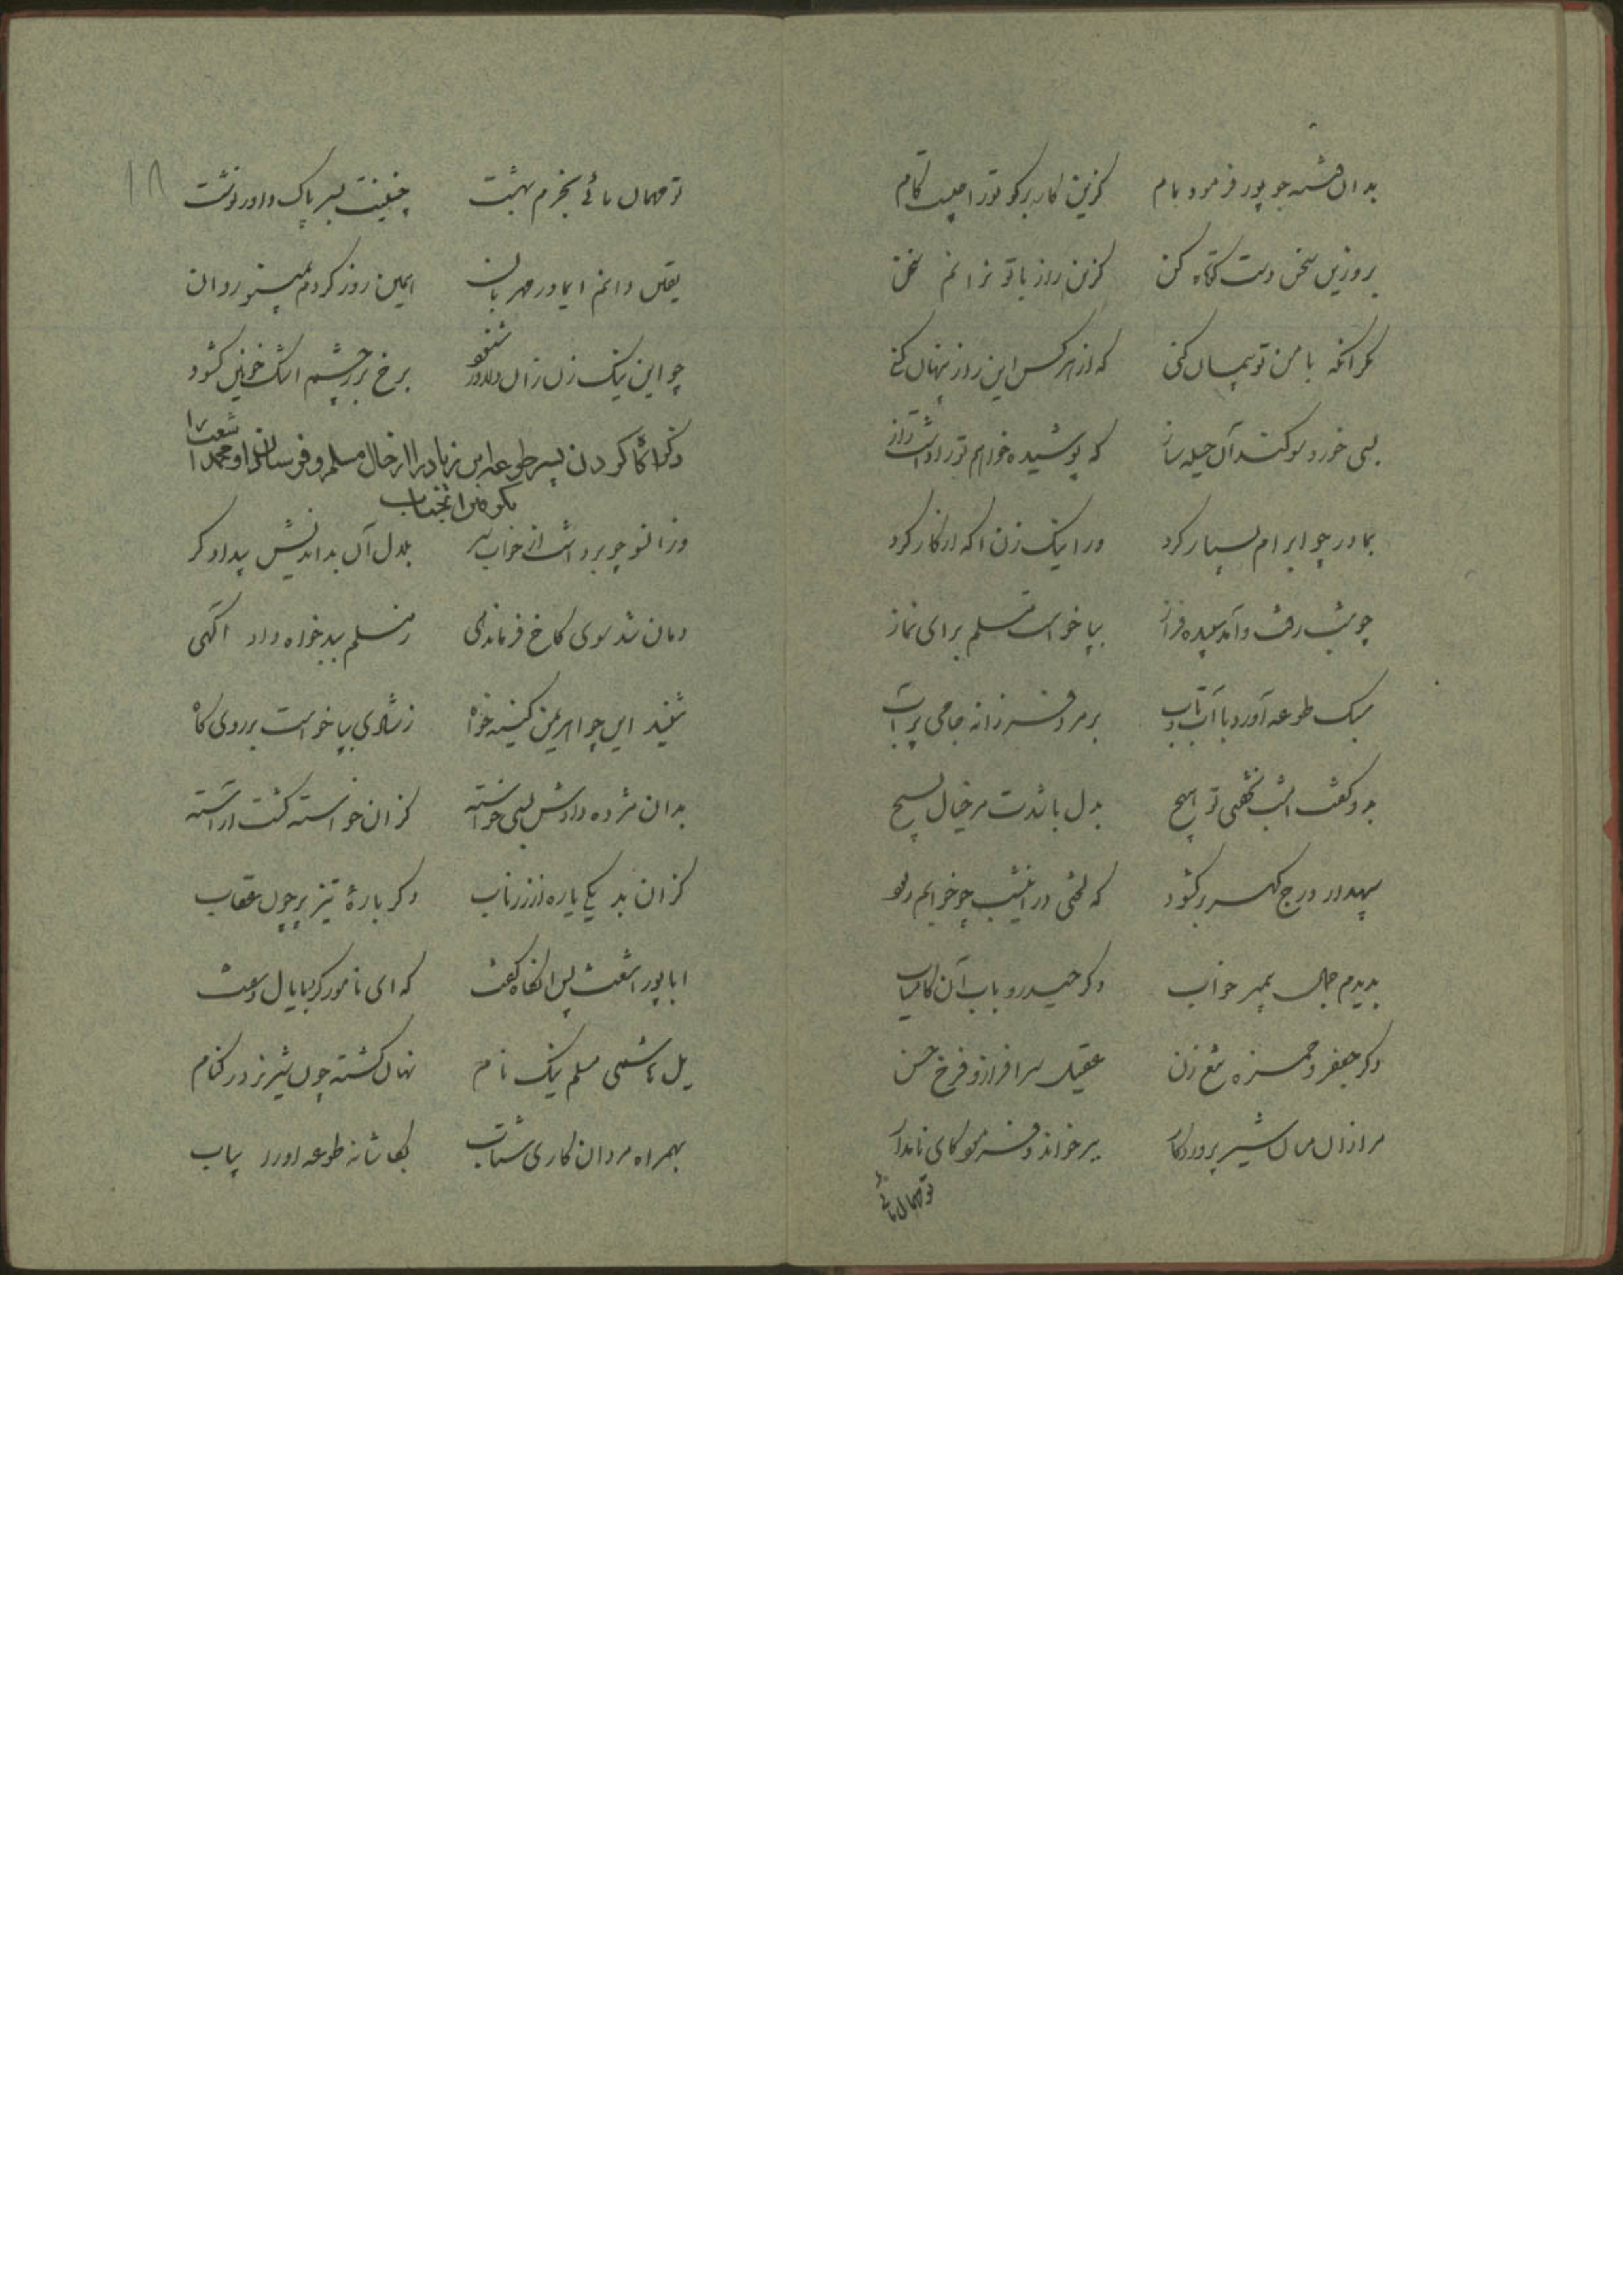 بدان فتنه جو پور فرمود مام کزین کار برگو تو را چیست کام
برو زین سخن دست کوتاه کن کزین راز با تو نرانم سخن
مگر آنکه با من تو پیمان کنی که از هر کس این راز پنهان کنی
بسی خورد سوگند آن حیله ساز که پوشیده خواهم تو را داشت راز
بمادر چو ابرام بسیار کرد ورا نیک زن آگه از کار کرد
چو شب رفت و آمد سپیده فراز بپا خواست مسلم برای نماز
سبک طوعه آورد با آب و تاب بر مرد فرزانه جامی پر آب
بدو گفت امشب نخفتی تو هیچ بدل باشدت مر خیال بسیچ
سپهدار درج گهر بر گشود که لختی در این شب چو خوابم ربود
بدیدم جمال پیمبر بخواب دگر حیدر و باب آن کامیاب
دگر جعفر و حمزه تیغ زن عقیل سرافراز و فرخ حسن
مرا زان میان شیر پروردگار ببر خواند و فرمود کای نامدار
تو مهمان مائی
۱۸
تو مهمان مائی بخرم بهشت چنینت بسر پاک داور نوشت
یقین دانم ای مادر مهربان همین روز گردم بمینو روان
چو این نیک زن زان دلاور شنود برخ بر ز چشم اشک خونین گشود
ذکر آگاه کردن پسر طوعه ابن زیاد را از حال مسلم و فرستادن او محمد اشعث را بگرفتن آنجناب
وز آنسو چو برداشت از خواب سر بلدل آن بداندیش بیدادگر
دمان شد سوی کاخ فرماندهی ز مسلم ببدخواه داد آگهی
شنید این چو اهریمن کینه خواه ز شادی بپا خواست بر روی گاه
بدان مژده دادش بسی خواسته کزان خواسته گشت آراسته
کزان بد یکی یاره از زر ناب دگر باره تیز پر چون عقاب
ابا پور اشعث پس آنگاه گفت که ای نامور گرد با یال و سفت
یل هاشمی مسلم نیک نام نهان گشته چون شیر نر در کنام
بهمراه مردان کاری شتاب بکاشانه طوعه او را بیاب